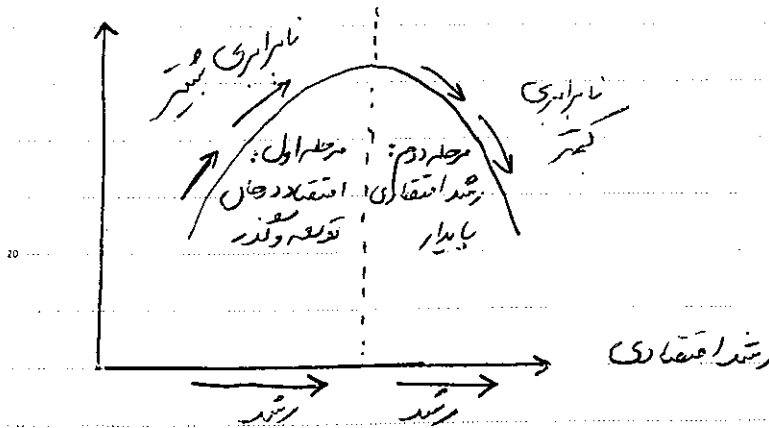 نابرابری
بیشتر
نابرابری
کمتر
مرحله اول:
اقتصاد در حال
توسعه و گذر
مرحله دوم:
رشد اقتصادی
پایدار
20
رشد اقتصادی
رشد
رشد